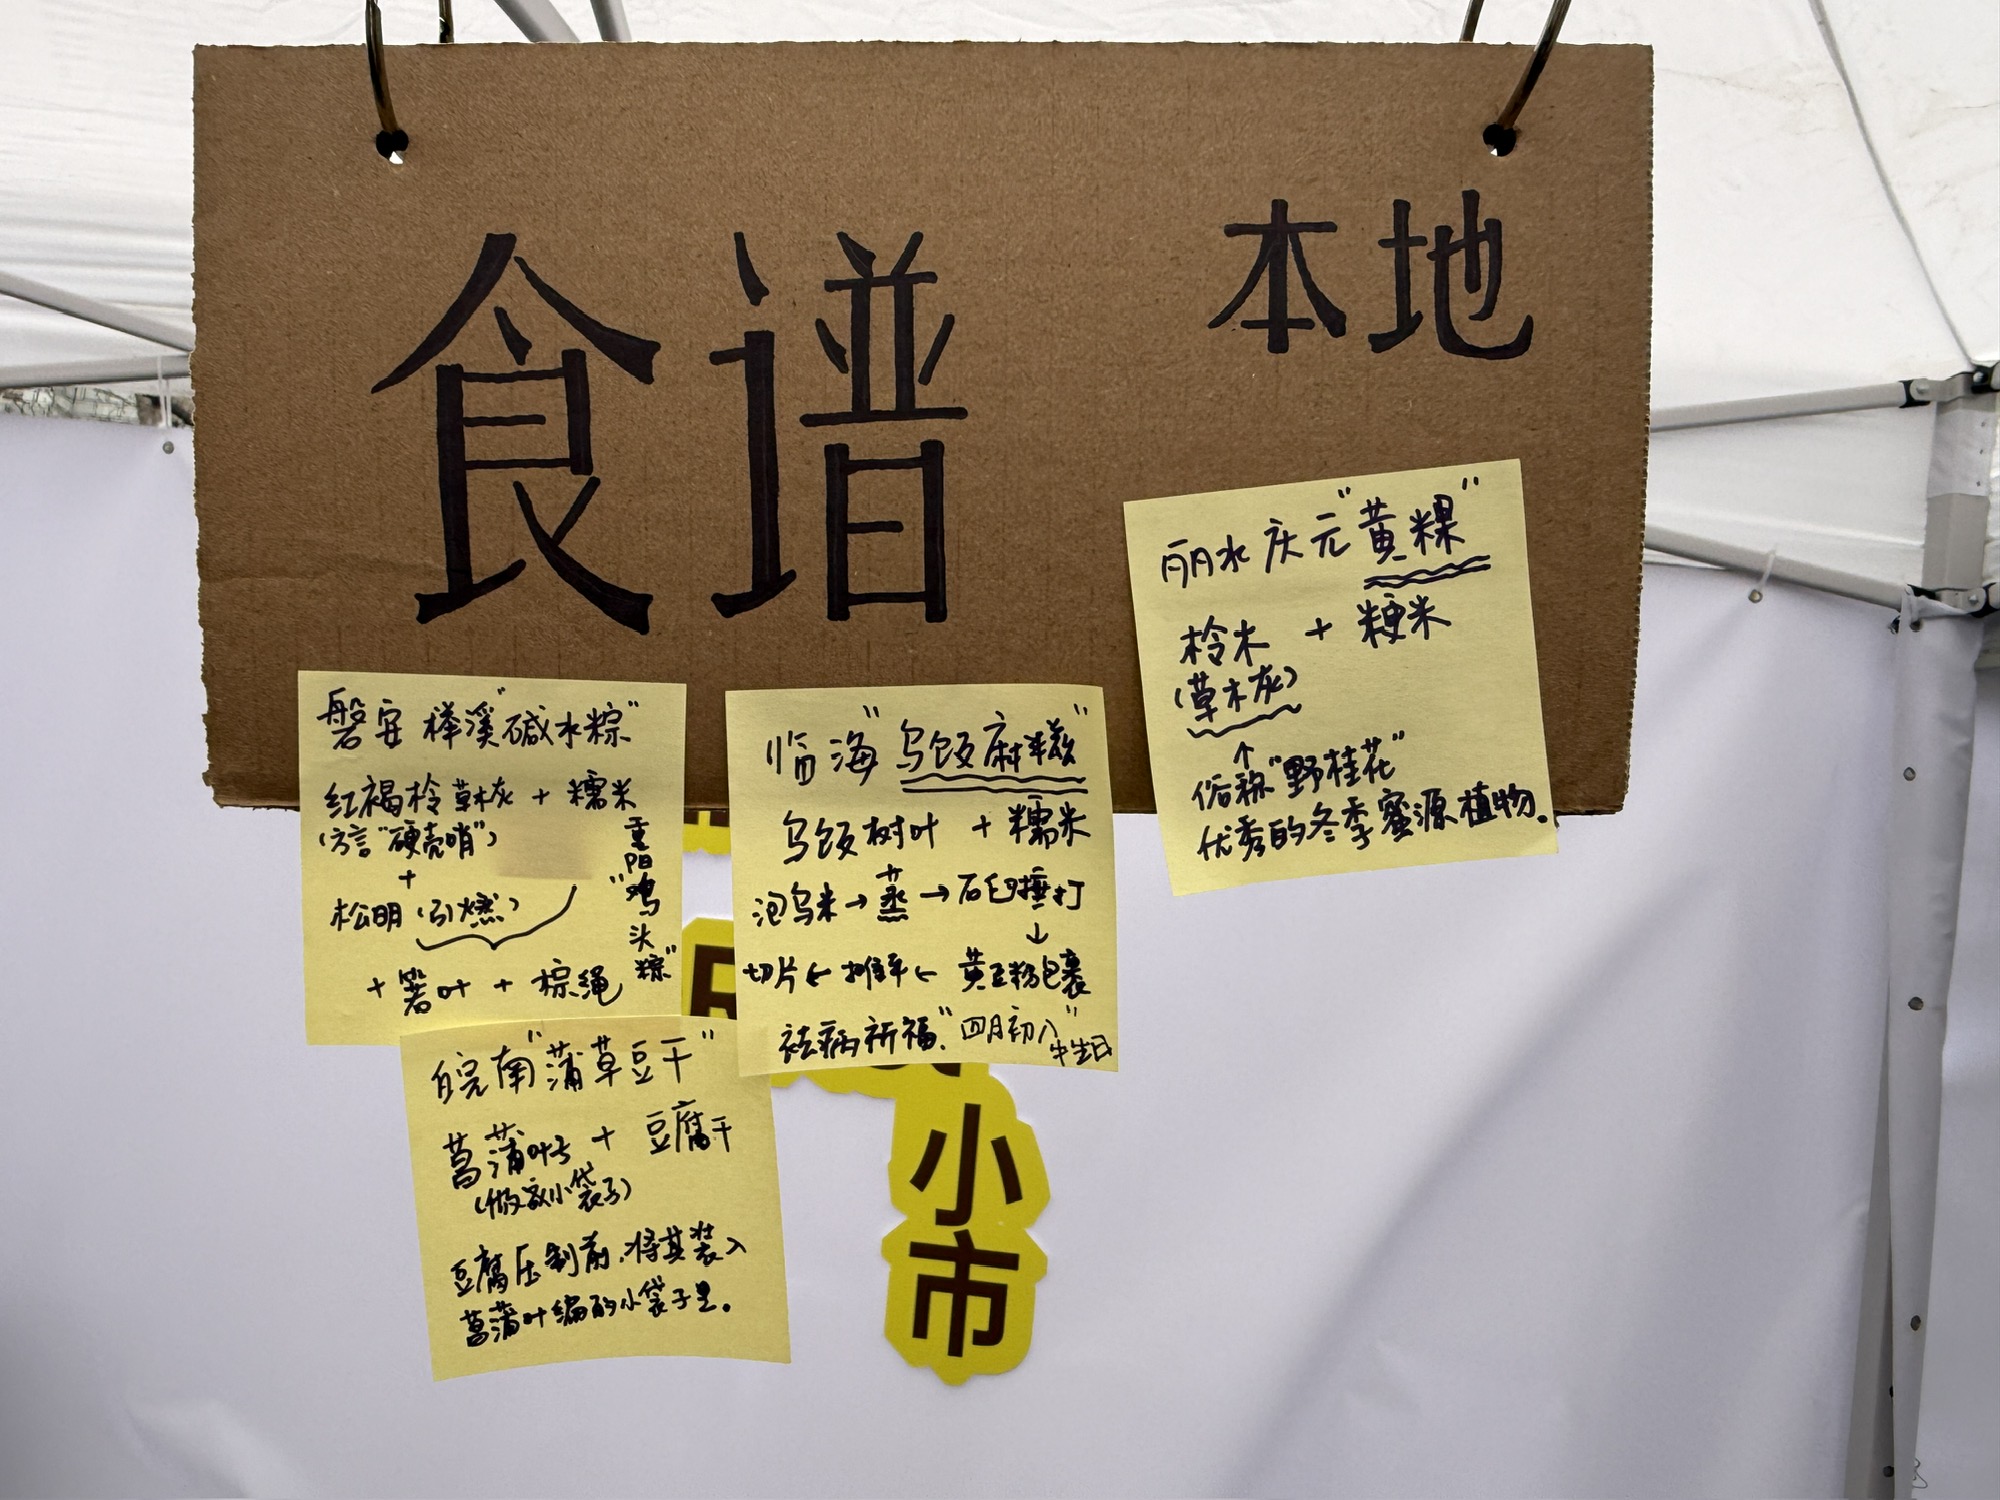 食谱
本地
丽水庆元“黄粿”
柃木 + 粳米
(草木灰)
↑
俗称“野桂花”
优秀的冬季蜜源植物。
磐安 榉溪“碱水粽”
红褐柃草木灰 + 糯米
(方言“硬壳哨”)
+
松明(引燃)
+ 箬叶 + 棕绳
重阳“鸡头粽”
临海“乌饭麻糍”
乌饭树叶 + 糯米
泡乌米→蒸→石臼捶打
↓
切片←推平← 黄豆粉包裹
祛病祈福.“四月初八”
牛生日
皖南“蒲草豆干”
菖蒲叶子 + 豆腐干
(做成小袋子)
豆腐压制前,将其装入
菖蒲叶编的小袋子里。
小
市